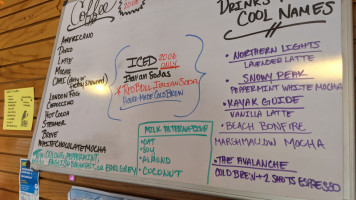 Coffee
AMERICANO
DRIP
LATTE
MOCHA
CHAI
LONDON FOG
CAPPUCCINO
HOT COCOA
STEAMER
BREVE
WHITE CHOCOLATE MOCHA
ICED 20OZ ONLY
ITALIAN SODAS
RED BULL ITALIAN SODA
HOUSE-MADE COLD BREW
MILK ALTERNATIVES
OAT
SOY
ALMOND
COCONUT
DRINKS
COOL NAMES
NORTHERN LIGHTS
LAVENDER LATTE
SNOWY PEAK
PEPPERMINT WHITE MOCHA
KAYAK GUIDE
VANILLA LATTE
BEACH BONFIRE
MARSHMALLOW MOCHA
THE AVALANCHE
COLD BREW + 2 SHOTS ESPRESSO